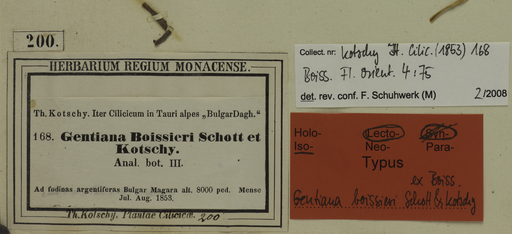 200.
HERBARIUM REGIUM MONACENSE.
Th. Kotschy. Iter Cilicicum in Tauri alpes „BulgarDagh.“
168. Gentiana Boissieri Schott et
Kotschy.
Anal. bot. III.
Ad fodinas argentiferas Bulgar Magara alt. 8000 ped. Mense
Jul. Aug. 1853.
Th. Kotschy. Plantae Ciliciem. 200
Collect. nr: Kotschy It. Cilic. (1853) 168
Boiss. Fl. Orient. 4:75
det. rev. conf. F. Schuhwerk (M) 2/2008
Holo- Lecto- Syn-
Iso- Neo- Para-
Typus
ex Boiss.
Gentiana boissieri Schott & Kotschy